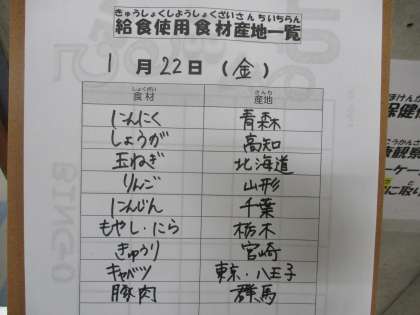 きゅうしょくしようしょくざいさんちいちらん
給食使用食材産地一覧
1月22日(金)
しょくざい さんち
食材 産地
にんにく 青森
しょうが 高知
玉ねぎ 北海道
りんご 山形
にんじん 千葉
もやし・にら 栃木
きゅうり 宮崎
キャベツ 東京・八王子
豚肉 群馬
BINGO